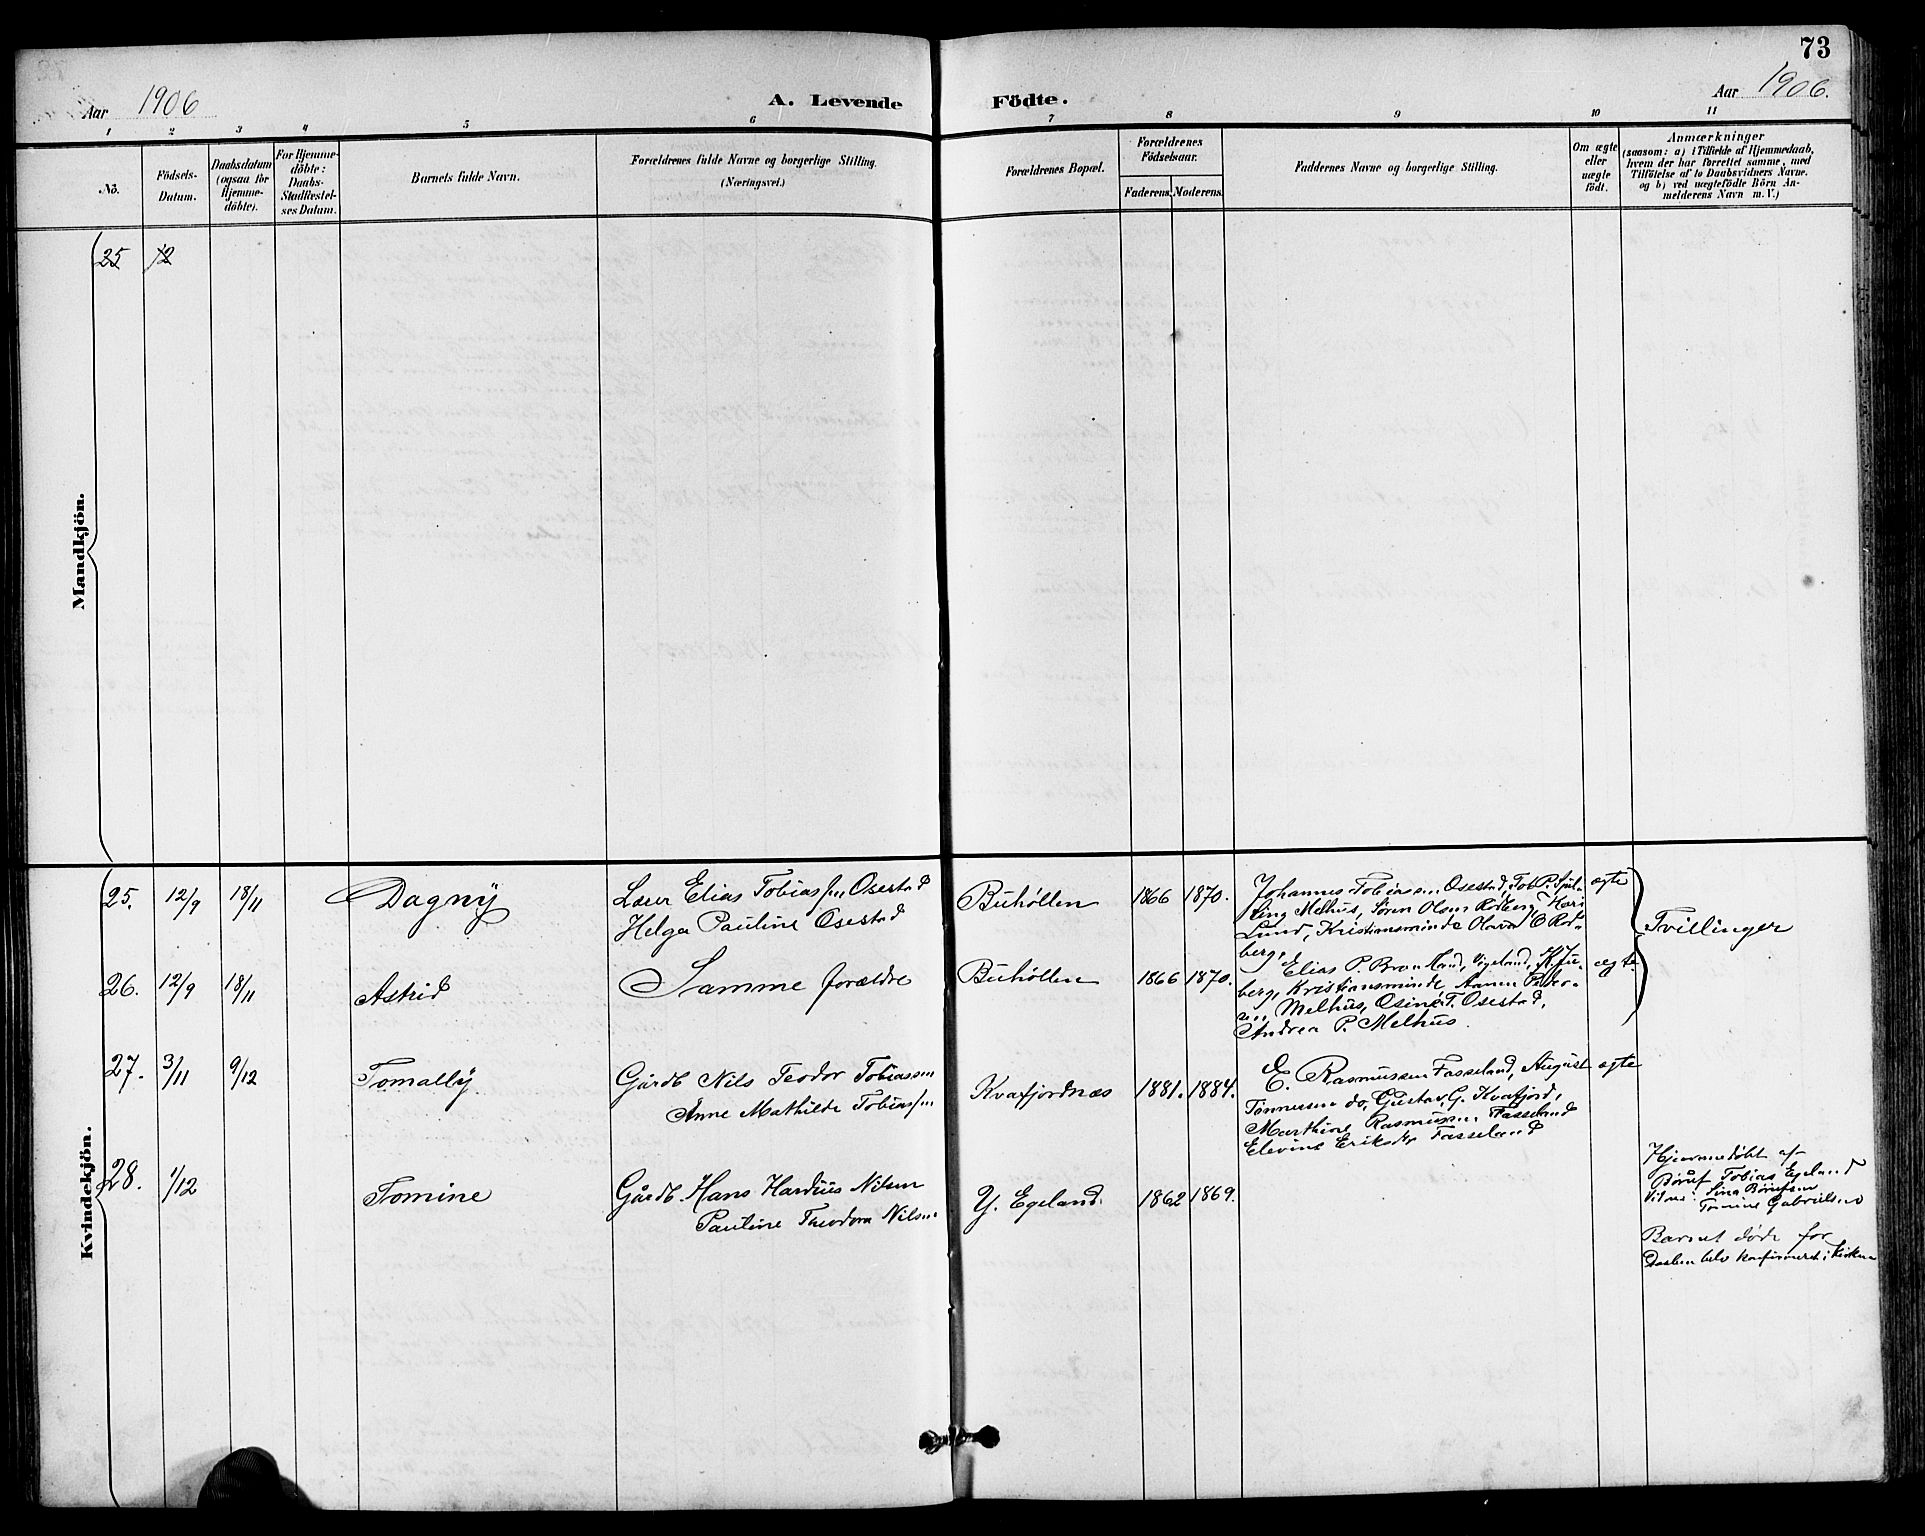 73
Aar 1906
A. Levende Födte.
Aar 1906.
1 2 3 4 5 6 7 8 9 10 11
No.
Födsels-
Datum.
Daabsdatum
(ogsaa for
Hjemme-
döbte).
For Hjemme-
döbte:
Daabs-
Stadfæstel-
ses Datum.
Barnets fulde Navn.
Forældrenes fulde Navne og borgerlige Stilling.
(Næringsvei.)
Forældrenes Bopæl.
Forældrenes
Födselsaar.
Faderens. Moderens.
Faddernes Navne og borgerlige Stilling.
Om ægte
eller
uægte
födt.
Anmærkninger
(saasom: a) i Tilfælde af Hjemmedaab,
hvem der har forrettet samme, med
Tilföielse af to Daabsvidners Navne.
og b) ved uægtefödte Börn An-
melderens Navn m. V.)
Mandkjön.
25 12
Kvindekjön.
25. 12/9 18/11 Dagny
Elias Tobiassen Osestad
Helga Pauline Osestad
Buhøllen 1866 1870.
Johannes Tobiassen Osestad, Tob. P.
Melhus, Søren Olsen Rødberg,
Lund, Kristiansminde Olava O Rød-
berg,
ægte
Tvillinger
26. 12/9 18/11 Astrid
Samme forældre
Buhøllen 1866 1870.
Elias P. Vigeland,
berg, Kristiansminde Peder-
sen, Melhus, Osine T. Osestad,
Andrea P. Melhus.
ægte
27. 3/11 9/12 Tomally
Gårdb Nils Teodor Tobiassen
Anne Mathilde Tobiassen
Kvafjordnæs 1881. 1884.
E. Rasmussen Fasseland, August
Tønnessen do, Gustav G. Kvafjord,
Marthine Rasmussen Fasseland
Elevine Eriksdtr Fasseland
ægte
28. 1/12 Tomine
Gårdb. Hans Hardius Nilsen
Pauline Theodora Nilsen
Y. Egeland. 1862 1869.
Hjemmedøbt af
Børuf Tobias Egeland
Vitne: Sina Børufsen
Tomine Gabrielsen
Barnet døde før
Daaben blev konfirmeret i Kirken